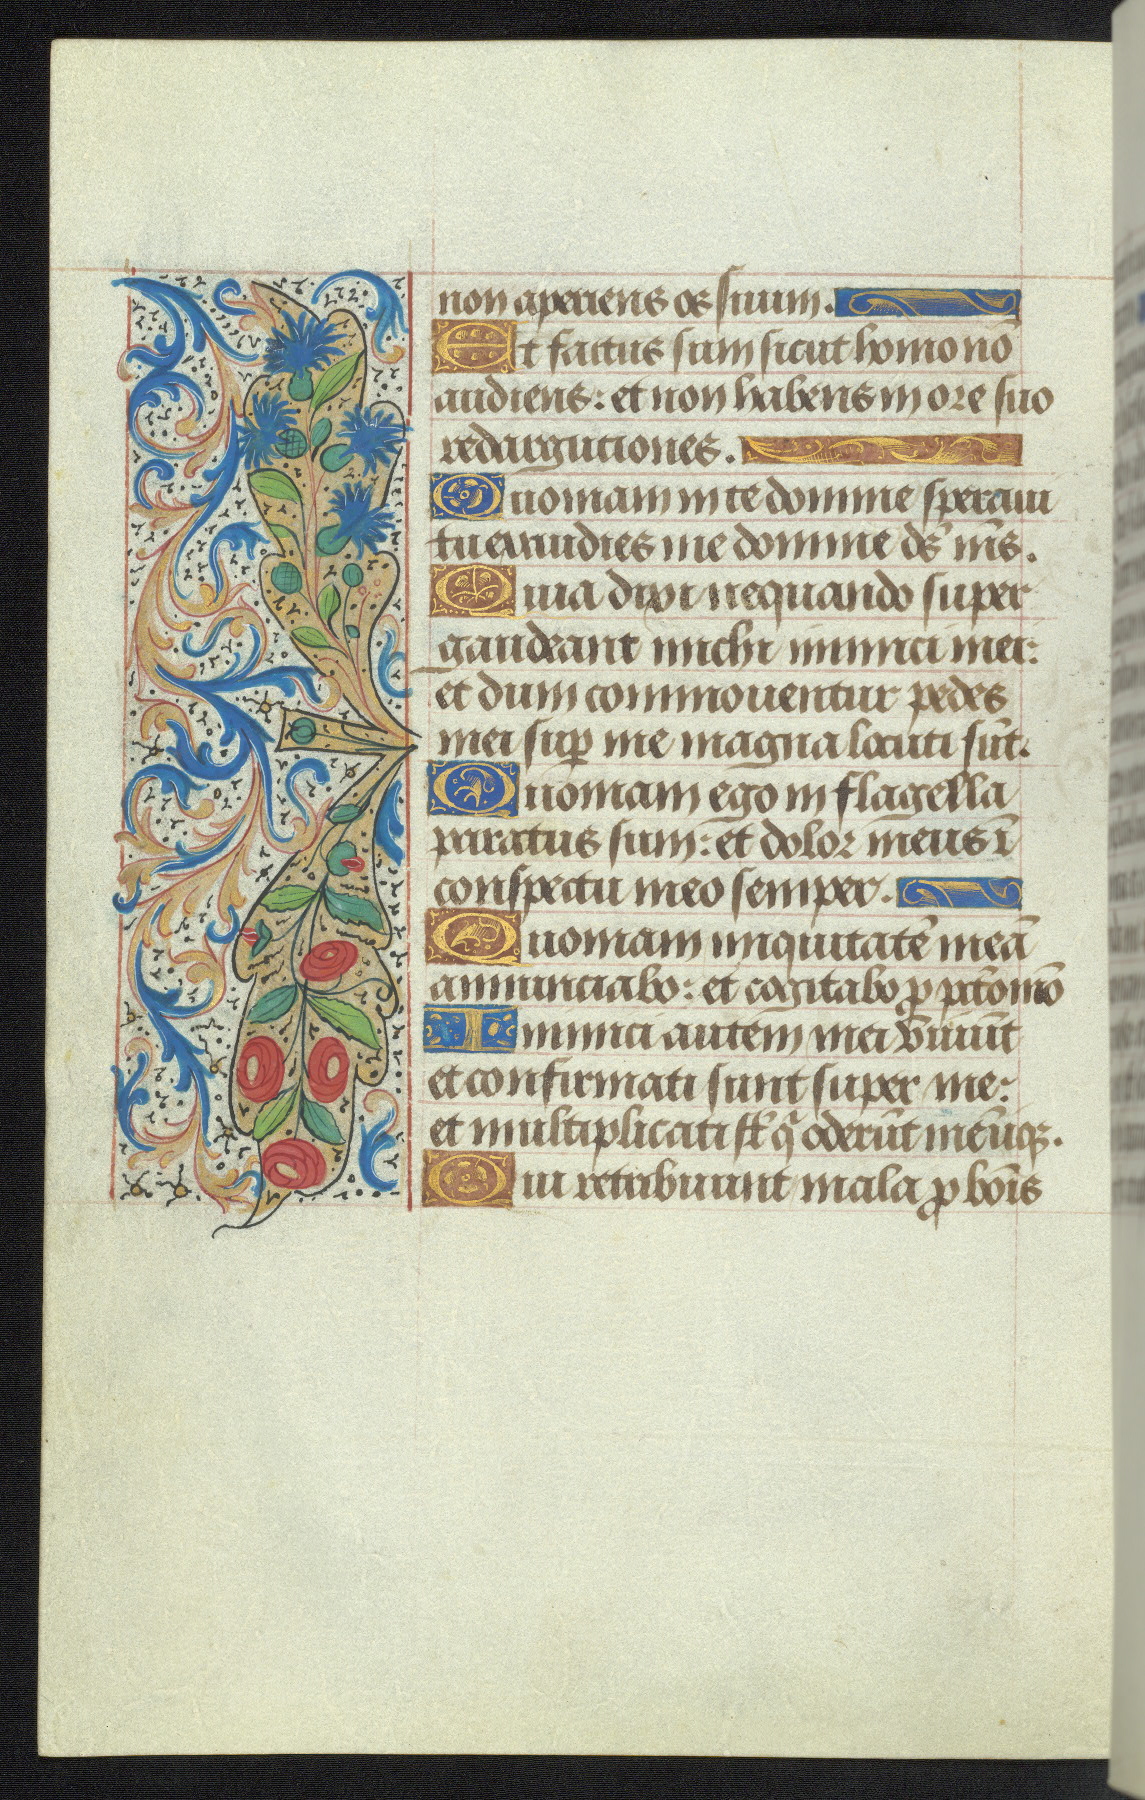 non aperiens os suum.
Et factus sum sicut homo nō
audiens: et non habens in ore suo
redargutiones.
Quoniam in te domine speraui
tu exaudies me domine ds̄ ms̄.
Quia dixi nequando super
gaudeant michi inimici mei:
et dum commouentur pedes
mei suꝑ me magna locuti sūt.
Quoniam ego in flagella
paratus sum: et dolor meus ī
conspectu meo semper.
Quoniam iniquitatē meā
annunciabo: et cogitabo ꝓ pctō meō
Inimici autem mei viuūt
et confirmati sunt super me:
et multiplicati st̄ q̄ oderūt me īiq̄.
Qui retribuunt mala ꝓ bōis